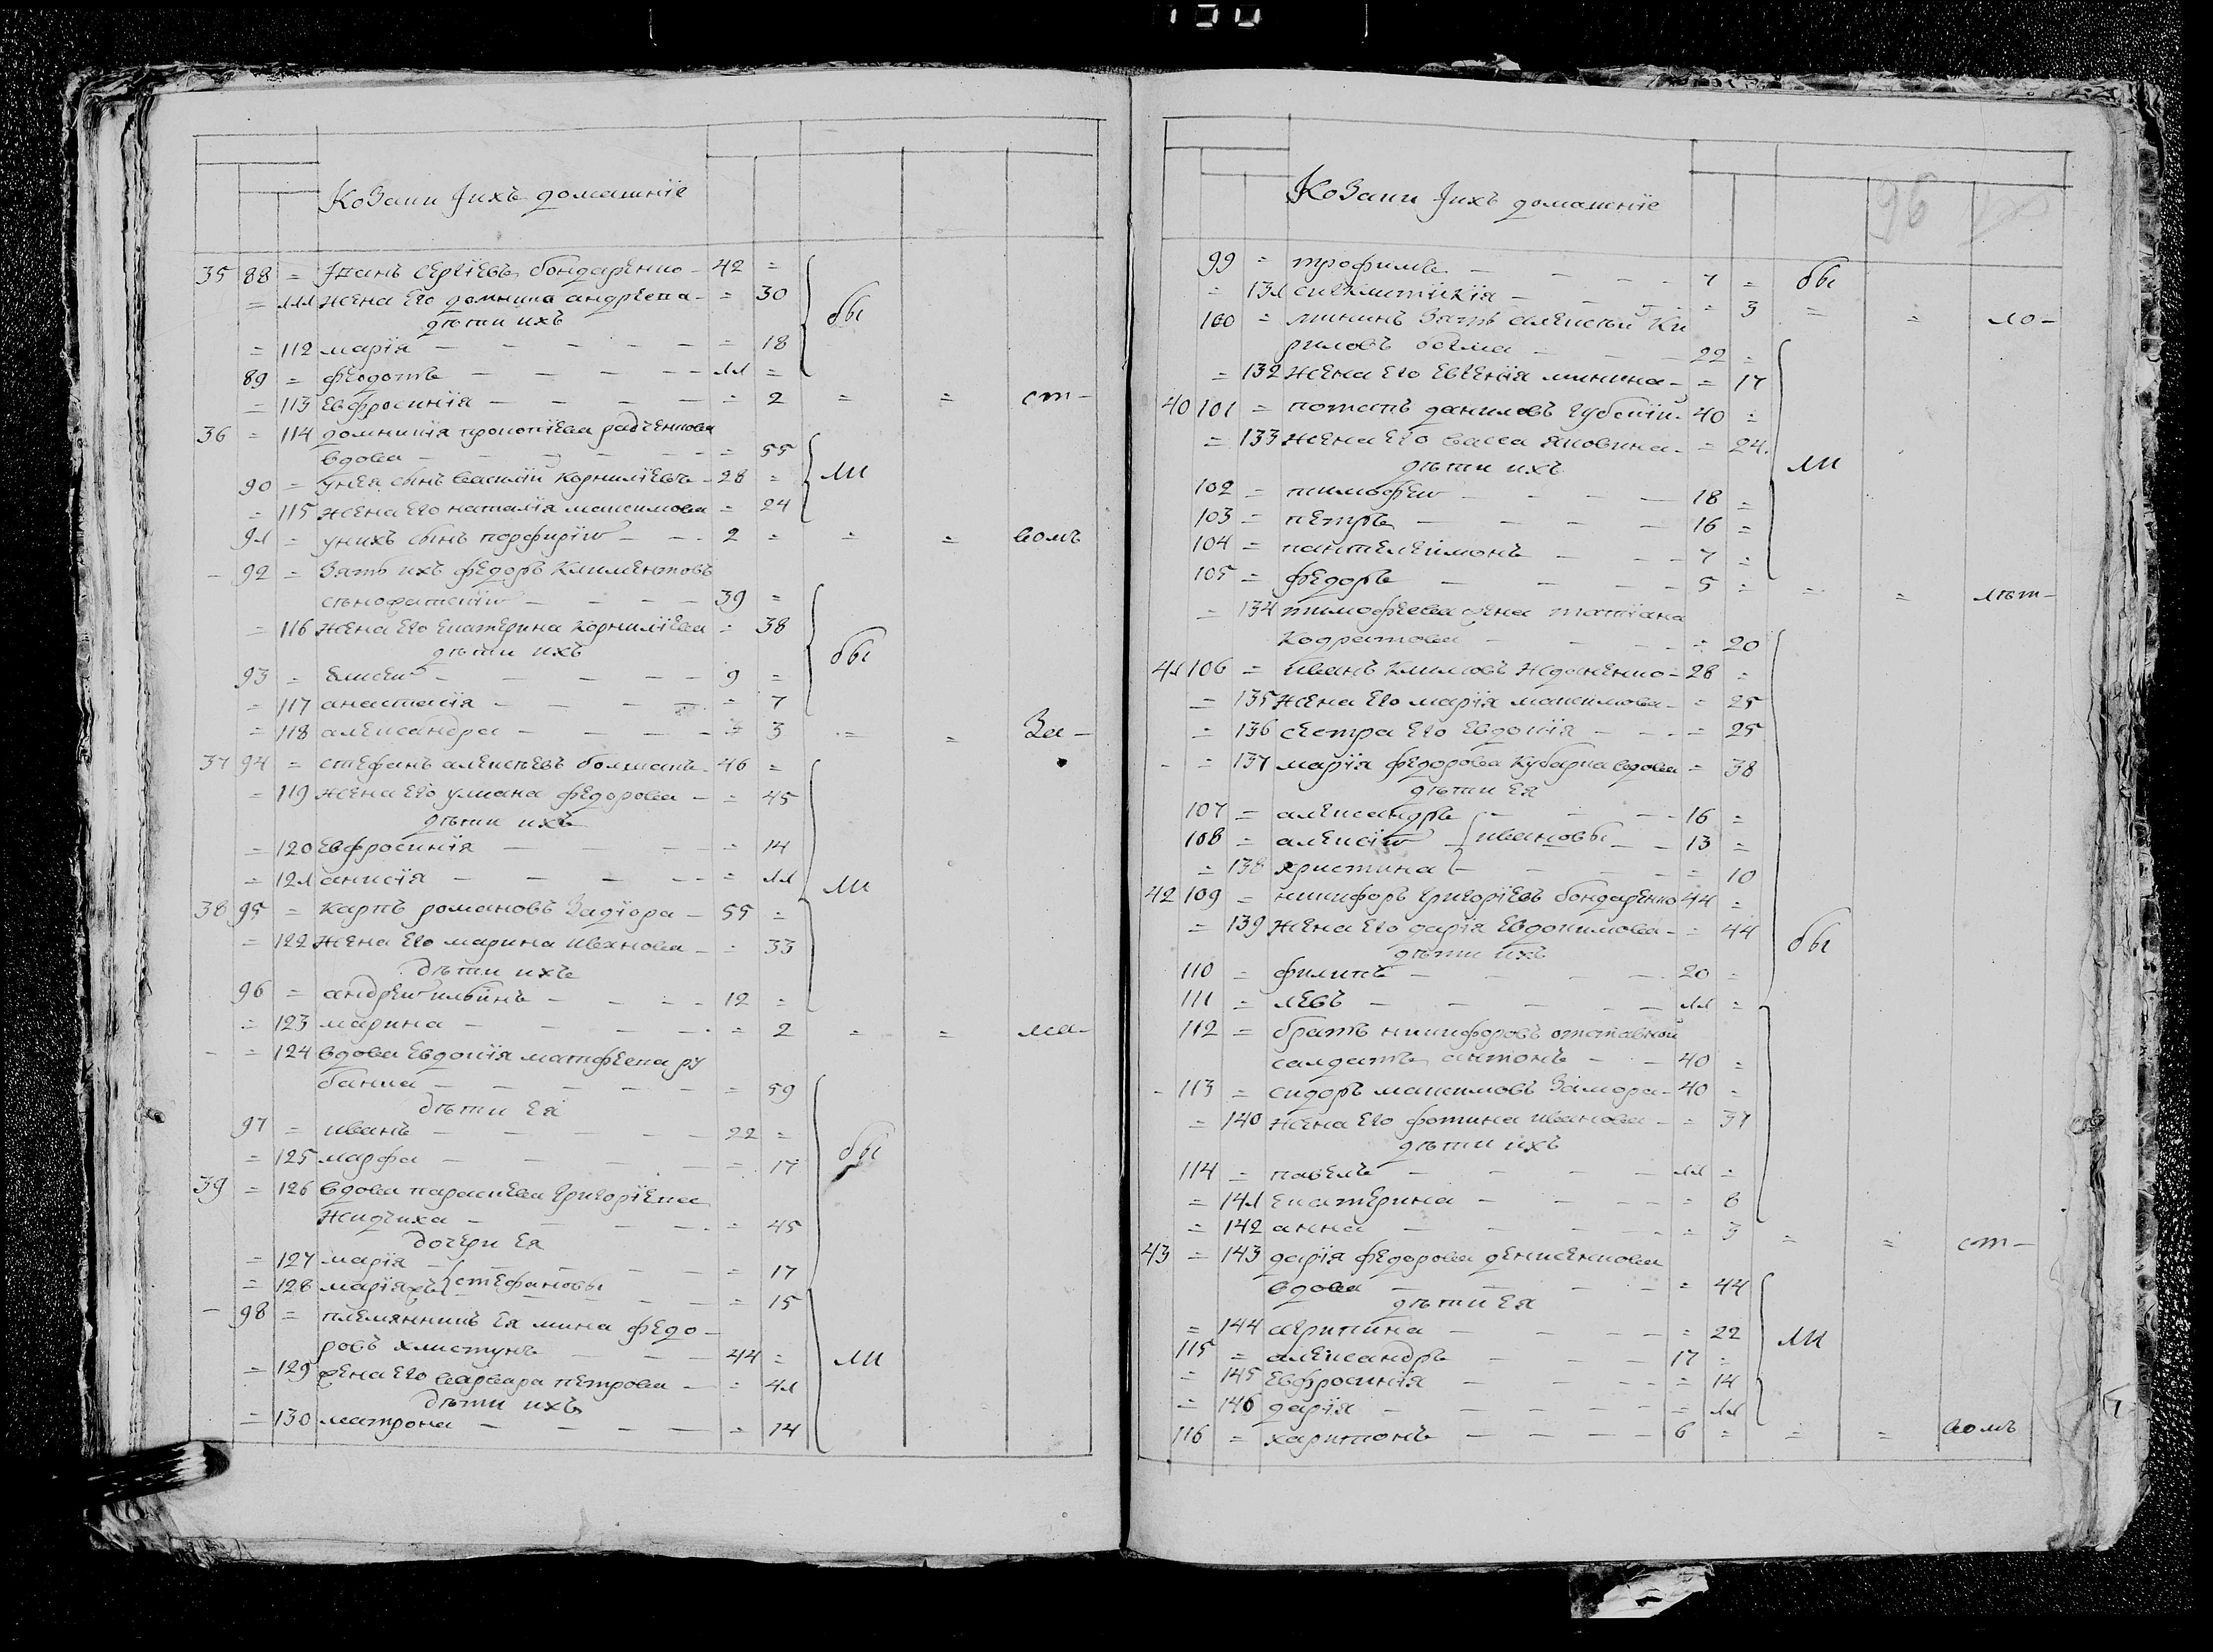 Козаки Iихъ домашнiе
35 88 = Iванъ Сергiевъ бондаренко - 42 =
= 111 жена его домника андреева - = 30
дѣти ихъ
= 112 марiя - - - - - = 18
89 = федотъ - - - - - 11 =
= 113 Евфросинiя - - - - = 2 = = ст-
36 = 114 домникiя прокопiева радченкова
вдова - - - - - = 55
90 = унея сынъ василiй корнилiевъ - 28 =
= 115 жена его наталiя максимова = 24
91 = унихъ сынъ порфирiй - - - 2 = = = комъ
- 92 = Зять ихъ федоръ Климентовъ
- - - - 39 =
= 116 жена его екатерина корнилiева = 38
дѣти ихъ
93 = Елисей - - - - - 9 =
= 117 анастасiя - - - - = 7
= 118 александра - - - - = 3 = = За-
37 94 = стефанъ алексѣевъ болшакъ - 46 =
= 119 жена его улиана федорова - = 45
дѣти ихъ
= 120 Евфросинiя - - - = 14
= 121 анисiя - - - - - = 11
38 95 = карпъ романовъ Задiора - 55 =
= 122 жена его марина ивахнова - = 33
дѣти ихъ
96 = андрей ильинъ - - - - 12 =
= 123 марина - - - - - = 2 = = ма-
- = 124 вдова Евдокiя матфеева ру
банка - - - - - = 59
дѣти Ея
97 = иванъ - - - - - 22 =
= 125 марфа - - - - - = 17
39 = 126 вдова параскева григорiева
Жидчиха - - - - = 45
дочери Ея
= 127 марiя - - - - = 17
= 128 марiяжъ стефановы - - - = 15
- 98 = племянникъ Ея мина федо-
ровъ хлистунъ - - - 44 =
= 129 жена его варвара петрова - = 41
дѣти ихъ
= 130 матрона - - - - - = 14
бы
ли
бы
ли
бы
ли
Козаки Iихъ домашнiе
96
99 = трофимъ - - - - 7 = бы
= 131 сигклитикiя - - - - = 3 = = ло-
100 = мининъ Зять алексѣй Ки
риловъ - - - 22 =
= 132 жена его Евгенiя минина - = 17
40 101 = потапъ даниловъ губскiй - 40 =
= 133 жена его васса яковина - = 24
дѣти ихъ
102 = тимофей - - - - 18 =
103 = петръ - - - - 16 =
104 = пантелеимонъ - - - 7 =
105 = федоръ - - - - 5 = = = лѣт-
= 134 тимофеева жена татiана
кодратова - - - = 20
41 106 = иванъ климовъ Жданенко - 28 =
= 135 жена его марiя максимова - = 25
= 136 сестра его Евдокiя - - - = 25
- = 137 марiя федорова кубарка вдова = 38
дѣти Ея
107 = александръ - - - 16 =
108 = алексiй ивановы - - 13 =
= 138 христина - - - = 10
42 109 = никифоръ григорiевъ бондаренко 44 =
= 139 жена его дарiя Евдокимова - = 44
дѣти ихъ
110 = филипъ - - - - 20 =
111 = левъ - - - - - 11 =
112 = братъ никифоровъ отставной
салдатъ антонъ - - 40 =
- 113 = сидоръ максимовъ Замора - 40 =
= 140 жена его фотина иванова - = 37
дѣти ихъ
114 = павелъ - - - - 11 =
= 141 Екатерина - - - - = 8
= 142 анна - - - - = 3 = = ст-
43 = 143 дарiя федорова денисенкова
вдова - - - - = 44
дѣти Ея
= 144 агрипина - - - - = 22
115 = александръ - - - - 17 =
= 145 Евфросинiя - - - = 14
= 146 дарiя - - - - - = 11
116 = харитонъ - - - - 6 = = = комъ
ли
бы
ли